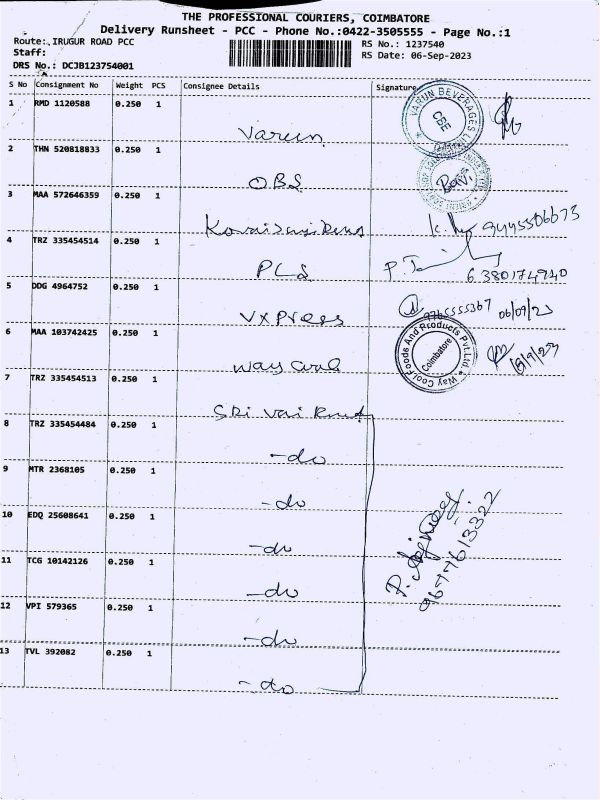 THE PROFESSIONAL COURIERS, COIMBATORE
Delivery Runsheet - PCC - Phone No.:0422-3505555 - Page No.:1
Route:. IRUGUR ROAD PCC RS No.: 1237540
Staff: RS Date: 06-Sep-2023
DRS No.: DCJB123754001
S No Consignment No Weight PCS Consignee Details Signature
1 RMD 1120588 0.250 1 Varun
VARUN BEVERAGES CBE
2 THN 520818833 0.250 1 OBS
3 MAA 572646359 0.250 1 9445506673
4 TRZ 335454514 0.250 1 PLS P. 6380174940
5 DDG 4964752 0.250 1 VXPress 9765555367 06/09/23
6 MAA 103742425 0.250 1 Way Cool
Way Cool Foods And Products Pvt.Ltd. Coimbatore 6/9/23
7 TRZ 335454513 0.250 1 Sri Vai
8 TRZ 335454484 0.250 1 -do
9 MTR 2368105 0.250 1 -do
10 EDQ 25608641 0.250 1 -do
11 TCG 10142126 0.250 1 -do
12 VPI 579365 0.250 1 -do
13 TVL 392082 0.250 1 -do
9677613322